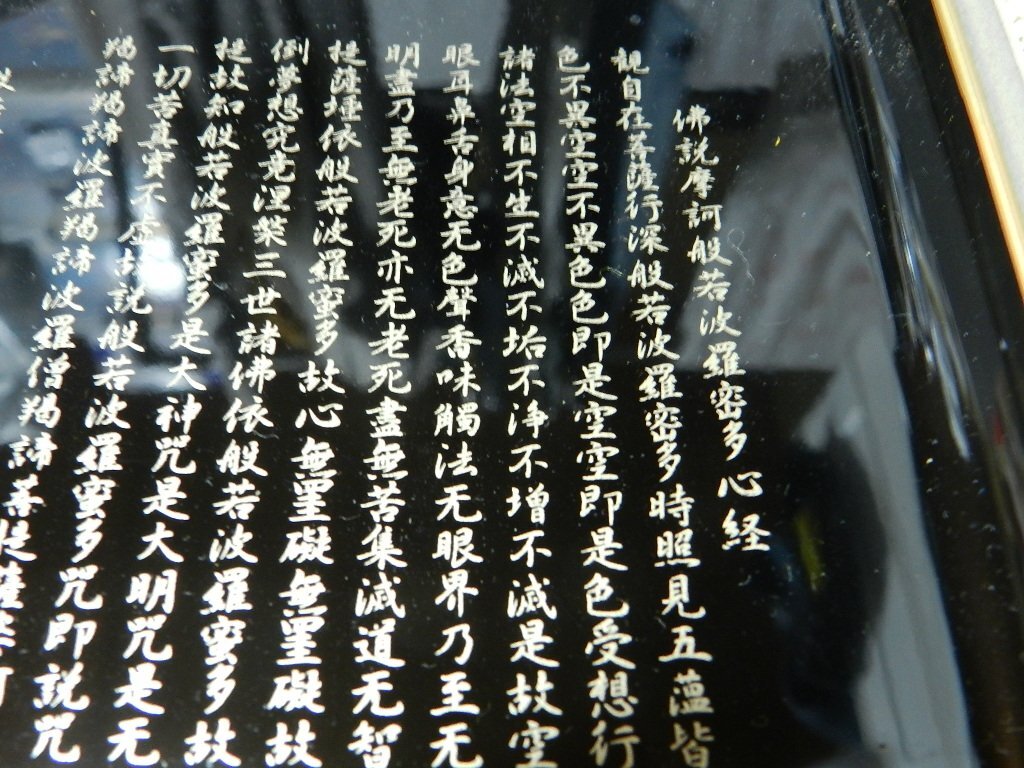 佛説摩訶般若波羅密多心経
観自在菩薩行深般若波羅密多時照見五蘊皆
色不異空空不異色色即是空空即是色受想行
諸法空相不生不滅不垢不浄不增不滅是故空
眼耳鼻舌身意无色聲香味觸法无眼界乃至无
明盡乃至無老死亦无老死盡無苦集滅道无智
提薩埵依般若波羅蜜多故心無罣礙無罣礙故
倒夢想究竟涅槃三世諸佛依般若波羅蜜多故
提故知般若波羅蜜多是大神咒是大明咒是无
一切苦真實不虚故説般若波羅蜜多咒即説咒
羯諦羯諦波羅羯諦波羅僧羯諦菩提薩